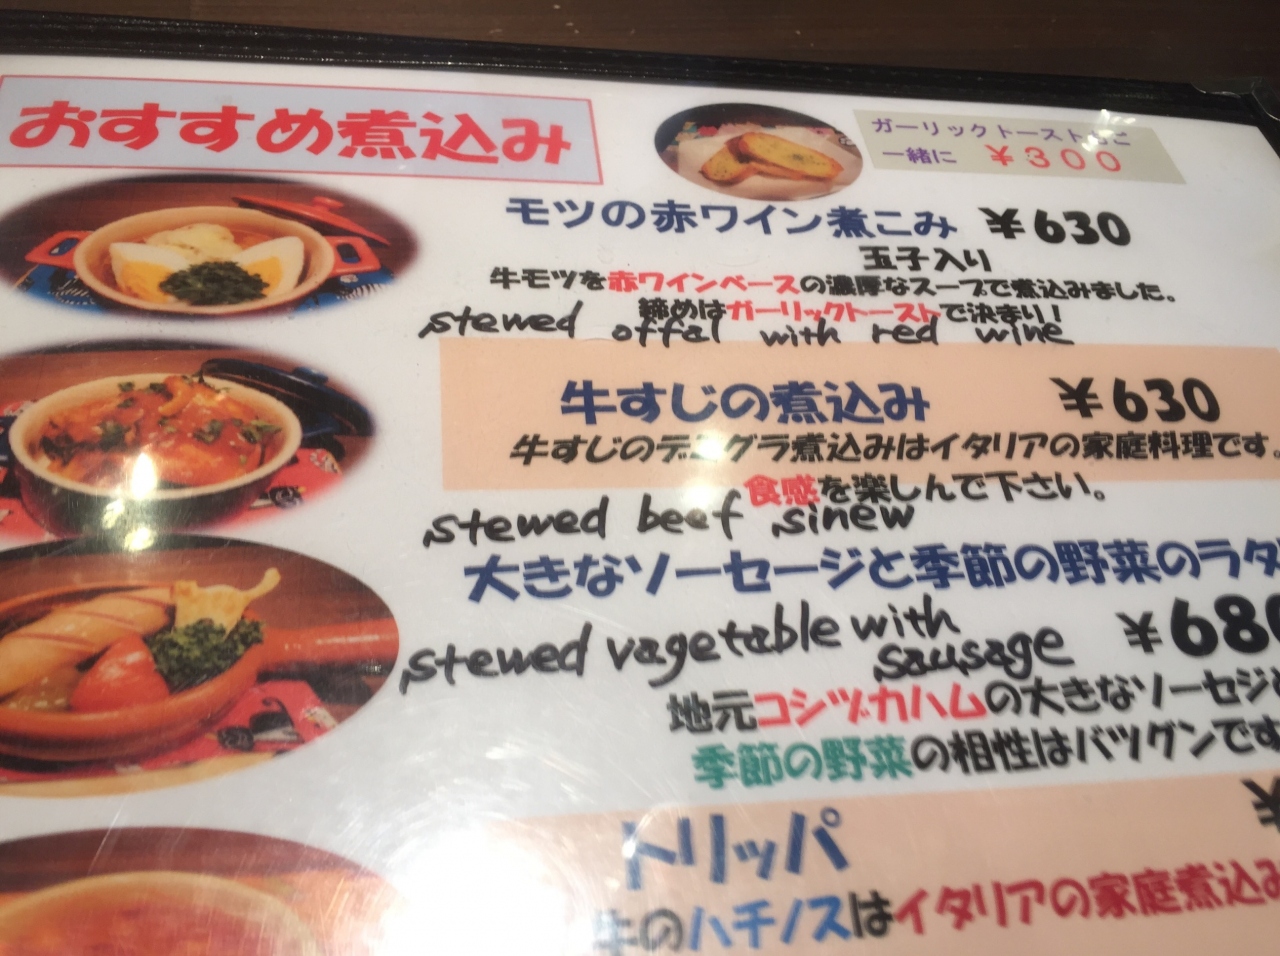 おすすめ煮込み
ガーリックトースト
一緒に ￥300
モツの赤ワイン煮こみ ￥630
玉子入り
牛モツを赤ワインベースの濃厚なスープで煮込みました。
締めはガーリックトーストで決まり!
stewed offal with red wine
牛すじの煮込み ￥630
牛すじのデミグラ煮込みはイタリアの家庭料理です。
食感を楽しんで下さい。
stewed beef sinew
大きなソーセージと季節の野菜のラタ
stewed vagetable with
sausage ￥680
地元コシヅカハムの大きなソーセージと
季節の野菜の相性はバツグンです
￥
トリッパ
牛のハチノスはイタリアの家庭煮込み